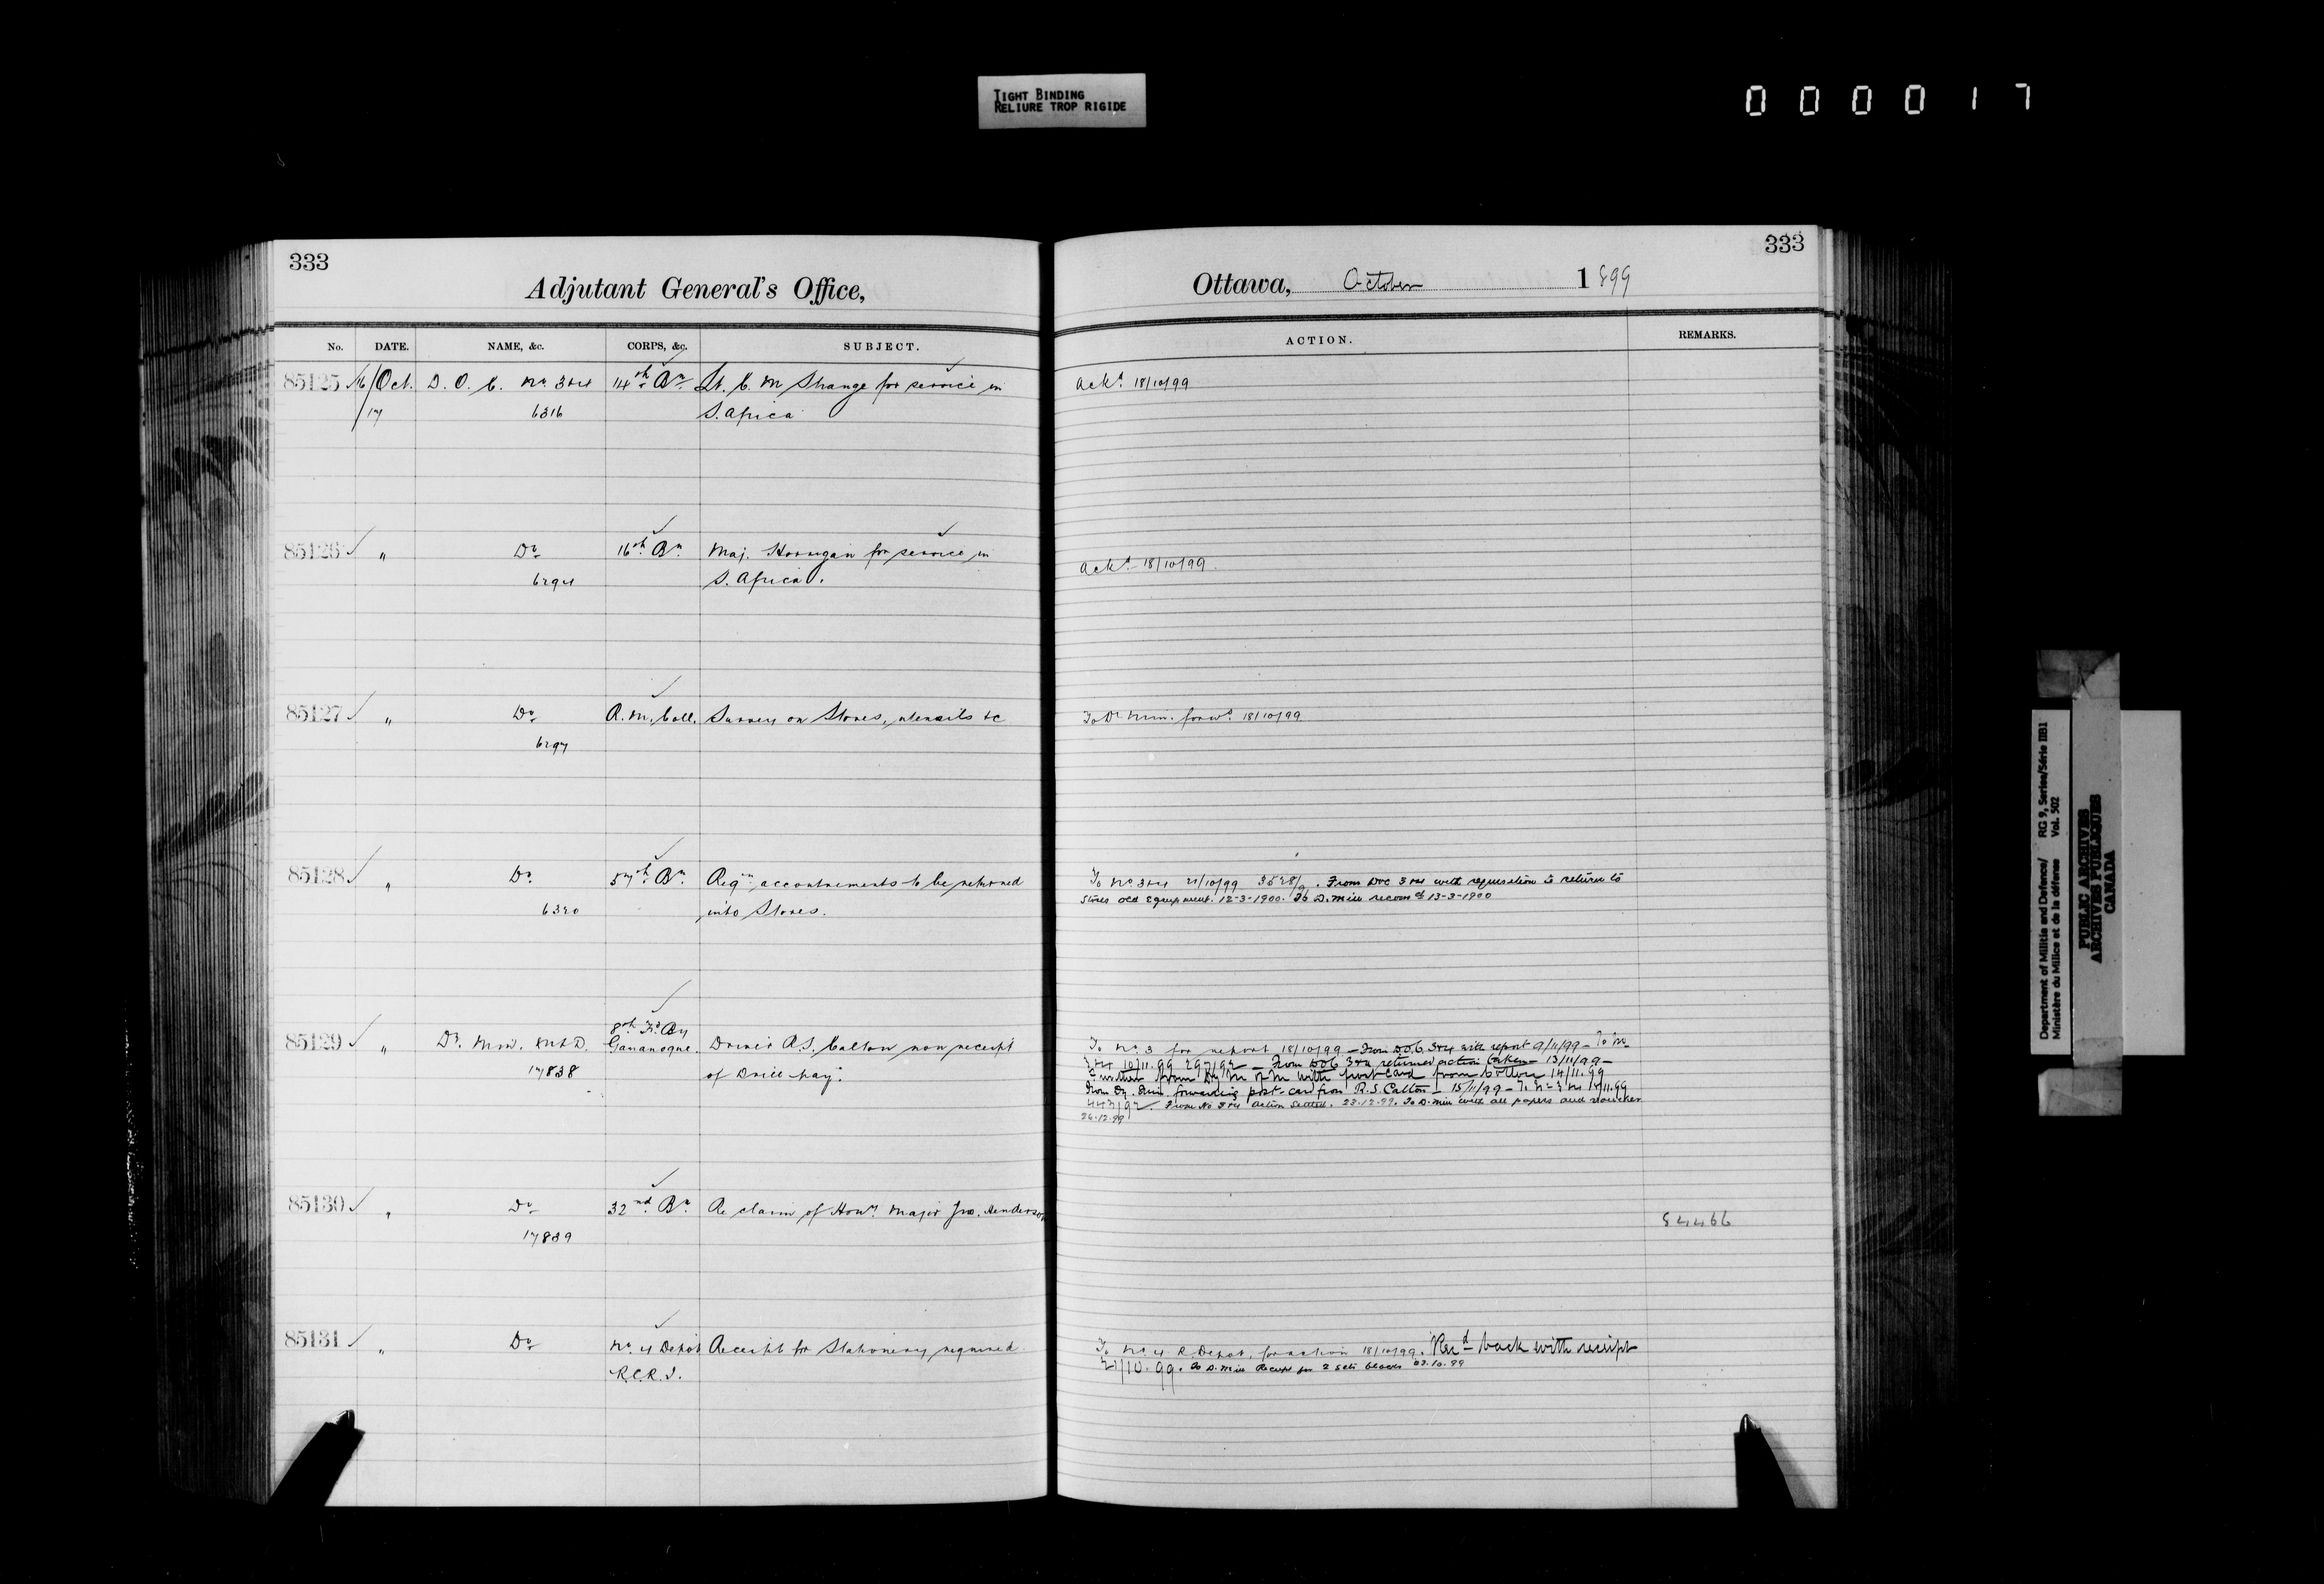 TIGHT BINDING
RELIURE TROP RIGIDE
000017
333
Adjutant General's Office,
No. DATE. NAME, &c. CORPS, &c. SUBJECT.
85125 16/Oct. D. O. C. No 3&4 14th Bn Lt. C. M Strange for service in
17 6316 S. Africa
85126 " Do 16th Bn Maj. for service in
6294 S. Africa.
85127 " Do R. M. Coll. Survey on Stores, utensils &c
6297
85128 " Do 57th Bn Reqn accoutrements to be returned
6320 into Stores.
85129 " Dy. Min. M&D. 8th Fd By Gananoque. Driver R.S. Calton non receipt
17838 of Drill pay.
85130 " Do 32nd Bn Re claim of Hony Major Jno. Henderson
17839
85131 " Do No. 4 Depot Receipt for Stationery required
R.C.R.I.
333
Ottawa, October 1899
ACTION. REMARKS.
Ackd 18/10/99
Ackd 18/10/99
To Dy Min. forwd 18/10/99
To No. 3&4 21/10/99 3528/9. From DOC 3&4 with requisition to return to
Stores old Equipment. 12-3-1900. To D. Min recomd 13-3-1900
To No. 3 for report 18/10/99 – From D.O.C. 3&4 with report 9/11/99 – To No
3&4 10/11.99 297/92 – From DOC 3&4 returned action taken – 13/11/99 –
from Dy Min of M with post-card from Colton 14/11.99
From Dy. Min. forwarding post-card from R.S Calton – 15/11/99 – To No 3&4 15/11.99
447/92. From No 3&4 action settled. 23.12.99. To D. Min with all papers and voucher
26.12.99
84466
To No. 4 R. Depot, for action 18/10/99. Recd back with receipt
21/10.99. To D. Min Receipt for 2 blocks 23.10.99
Department of Militia and Defence/ RG 9, Series/Série IIB1
Ministère du Milice et de la défense Vol. 502
PUBLIC ARCHIVES
ARCHIVES PUBLIQUES
CANADA